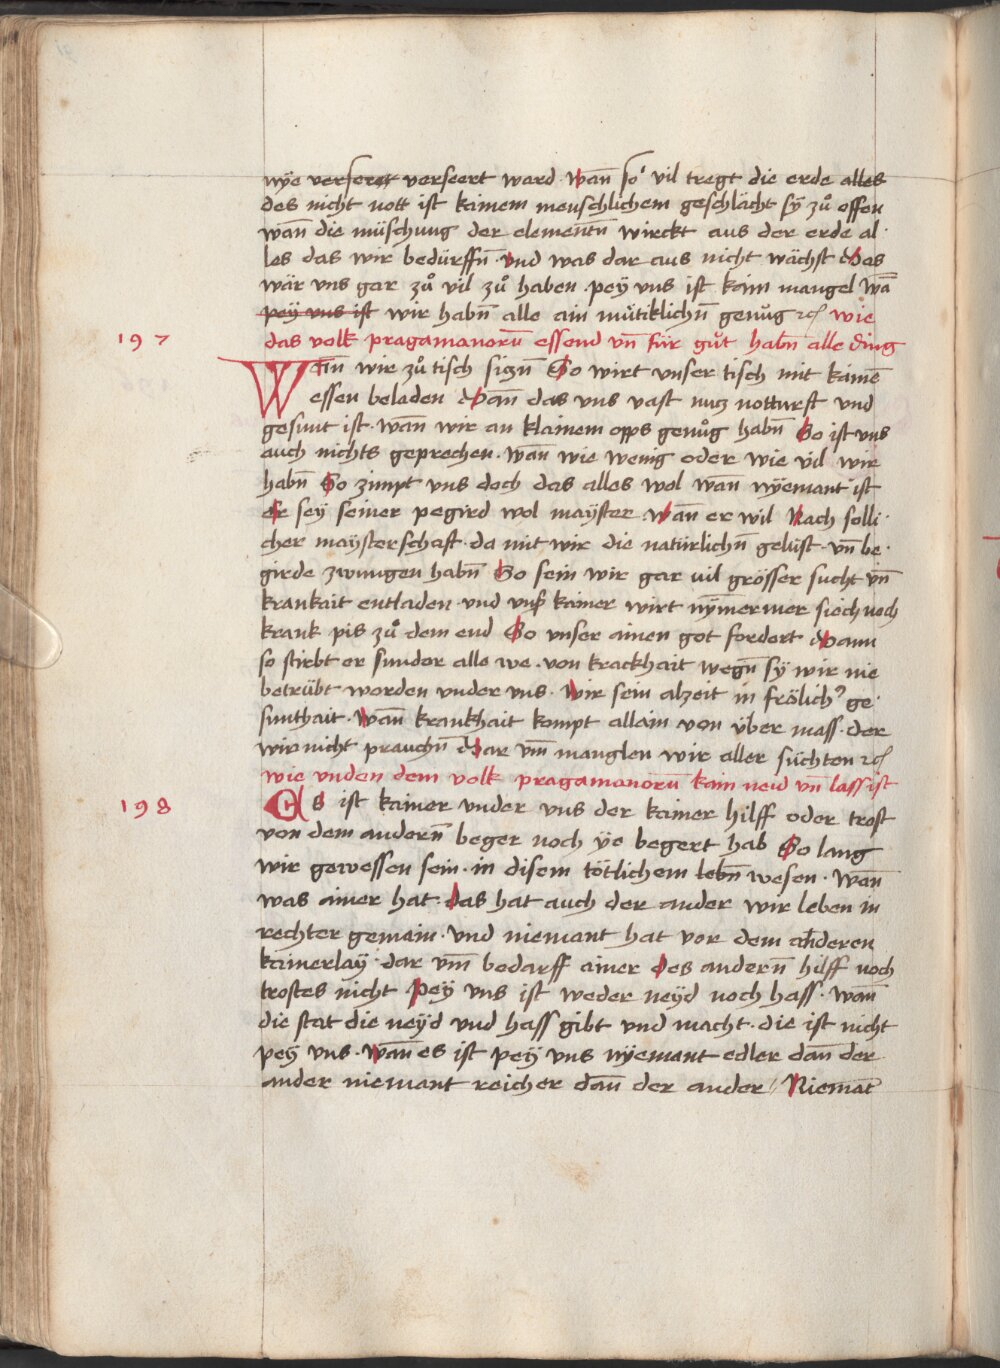 nÿe verseret verseert ward · wan̄ so vil tregt die erde alles
des nicht nott ist kainem menschlichem geschlächt sÿ zů essen
wan̄ die müschung der elementn̄ wirckt aus der erde al·
les das wir bedürffn̄ · vnd was dar aus nicht wächst Das
wär vns gar zů vil zů haben · peÿ vns ist kain mangel wā
peÿ vns ist wir habn̄ alle ain mütiklichn̄ genůg ꝛc̄ wie
197 das volk pragamanorū essend vn̄ für gůt habn̄ alle ding
Wan̄ wir zů tisch siczn̄ So wirt vnser tisch mit kainē
essen beladen Dan̄ das vns vast nucz notturft vnd
gesunt ist · wan̄ wir an klainem opps genůg habn̄ So ist vns
auch nichts geprechen · wan̄ wie wenig oder wie vil wir
habn̄ So zimpt vns doch das alles wol wan̄ nÿemant ist
Er seÿ seiner pegird wol maÿster · wan̄ er wil Nach solli·
cher maÿsterschaft · da mit wir die natürlichn̄ gelüst · vn̄ be·
girde zwungen habn̄ So sein wir gar vil grösser sucht vn̄
krankait entladen · vnd vnser kainer wirt nÿmermer siech noch
krank pis zů dem end So vnser ainen got fordert Dann
so stirbt er sunder alle we · von krackhait wegn̄ sÿ wir nie
betrübt worden vnder vns · Wir sein alzeit in frölicher ge·
sunthait · Wan̄ krankhait kompt allain von über mass · der
wir nicht prauchn̄ Dar vm̄ manglen wir aller süchten ꝛc̄
wie vnden dem volk pragamanorū kain neid vn̄ lass ist
198 Es ist kainer vnder vns der kainer hilff oder trost
von dem andern̄ beger noch ÿe begert hab So lang
wir gewessen sein · in disem tötlichem lebn̄ wesen · Wan̄
was ainer hat · das hat auch der ander wir leben in
rechter gemain · vnd niemant hat vor dem anderen
kainerlaÿ · dar vm̄ bedarff ainer des andern̄ hilff noch
trostes nicht Peÿ vns ist weder neÿd noch hass · wan̄
die stat die neÿd vnd hass gibt vnd macht · die ist nicht
peÿ vns · wan̄ es ist peÿ vns nÿemant edler dan̄ der
ander niemant reicher dan̄ der ander / Niemāt